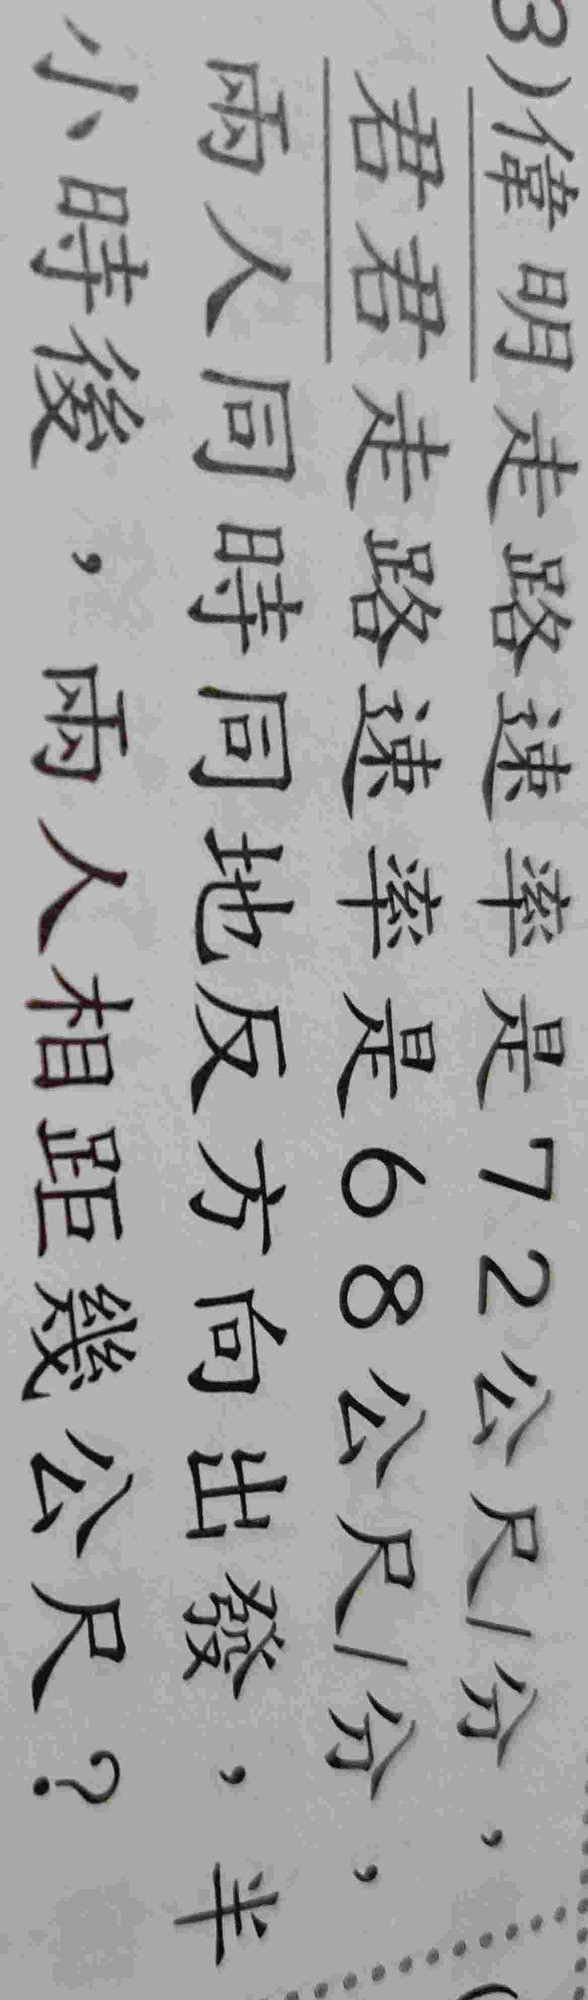 3)偉明走路速率是72公尺/分，
君君走路速率是68公尺/分，
兩人同時同地反方向出發，半
小時後，兩人相距幾公尺？
(